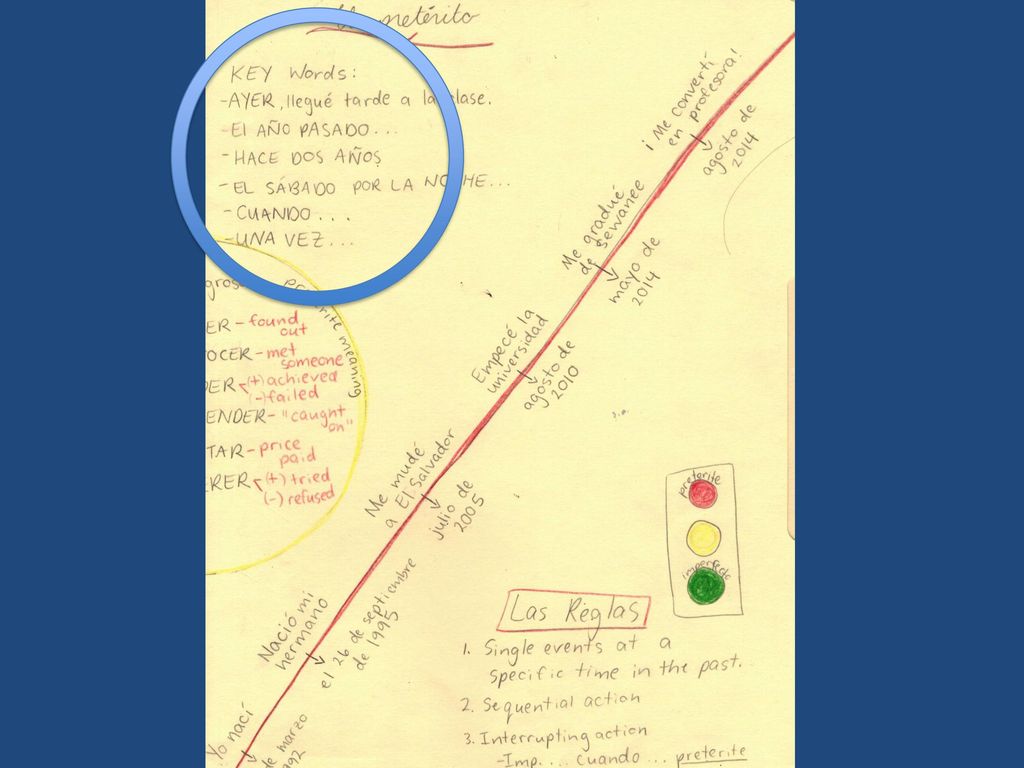 pretérito
KEY Words:
-AYER, llegué tarde a la clase.
-El AÑO PASADO...
-HACE DOS AÑOS
-EL SÁBADO POR LA NOCHE...
-CUANDO...
-UNA VEZ...
preterite meaning
ER-found
out
OCER-met
someone
DER (+)achieved
(-)failed
ENDER-"caught
on"
TAR-price
paid
ERER (+)tried
(-)refused
¡Me convertí
en profesora!
agosto de
2014
Me gradué
de Sewanee
mayo de
2014
Empecé la
universidad
agosto de
2010
Me mudé
a El Salvador
julio de
2005
Nació mi
hermano
el 26 de septiembre
de 1995
Yo nací
de marzo
992
preterite
imperfecto
Las Reglas
1. Single events at a
specific time in the past.
2. Sequential action
3. Interrupting action
-Imp.... Cuando... preterite